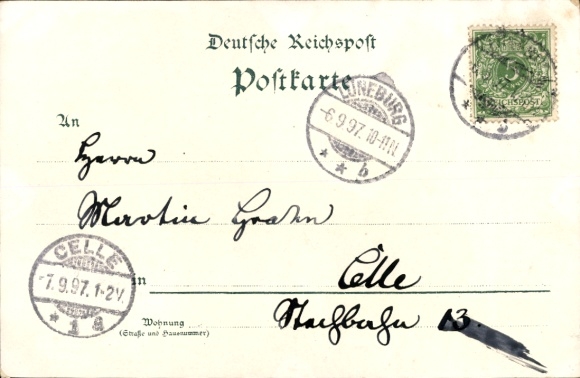 Deutsche Reichspost
Postkarte
5
REICHSPOST
LÜNEBURG
6 9 97. 10-11N
* * b
An
Herrn
Martin Grahn
CELLE
7. 9. 97. 1-2V.
* 1 a
in
Celle
Wohnung
(Straße und Hausnummer)
13